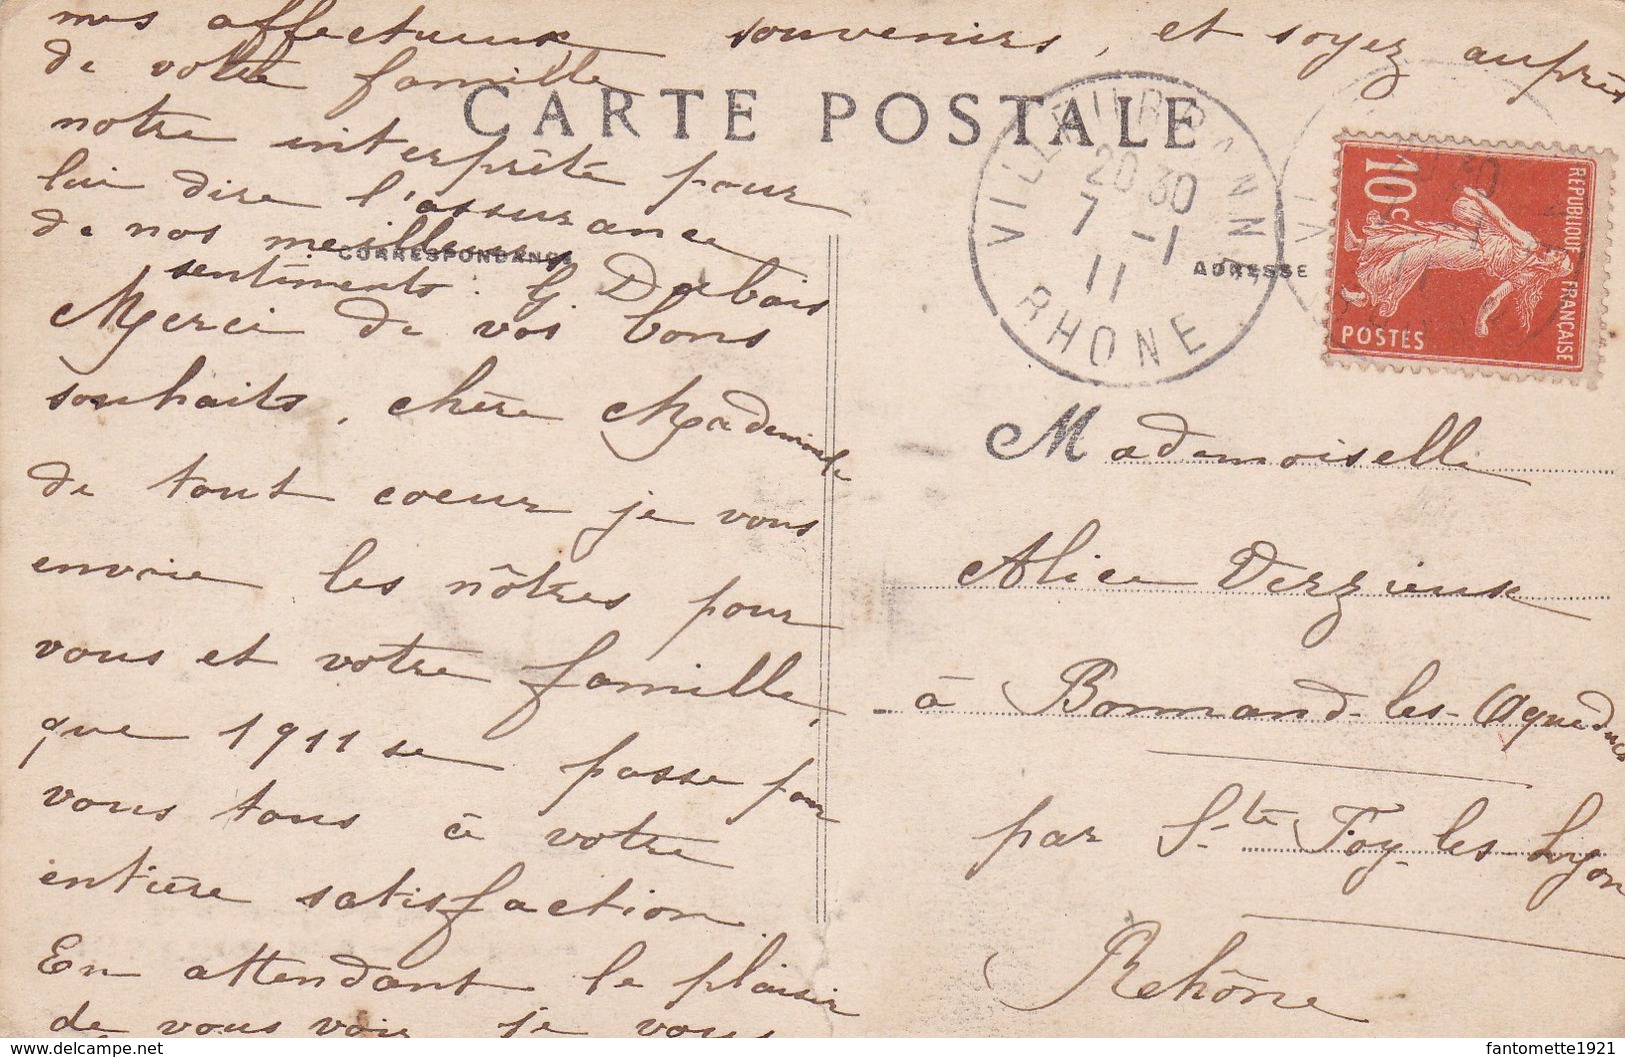 mes affectueux souvenirs, et soyez auprès
de votre famille
notre interprète pour
lui dire l'assurance
de nos meilleurs
sentiments. G. Dubois
CARTE POSTALE
CORRESPONDANCE
Merci de vos bons
souhaits, chère Mademoiselle
de tout coeur je vous
envoie les nôtres pour
vous et votre famille,
que 1911 se passe pour
vous tous à votre
entière satisfaction
En attendant le plaisir
de vous voir je vous
VILLEURBANNE
20 30
7 -1
11
RHONE
ADRESSE
REPUBLIQUE FRANÇAISE
10c
POSTES
Mademoiselle
Alice Verzieux
à Bonnand-les-Aqueducs
par Ste Foy-les-Lyon
Rehône
delcampe.net
fantomette1921